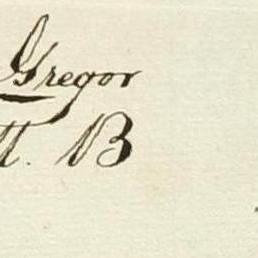 Gregor
tt. B